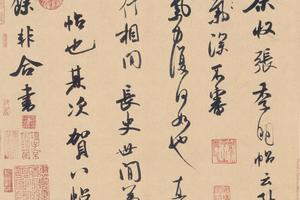 余収張季明帖云秋
氣深不審
氣力復何如也真
行相間長史世間第
帖也其次賀八帖
餘非合書